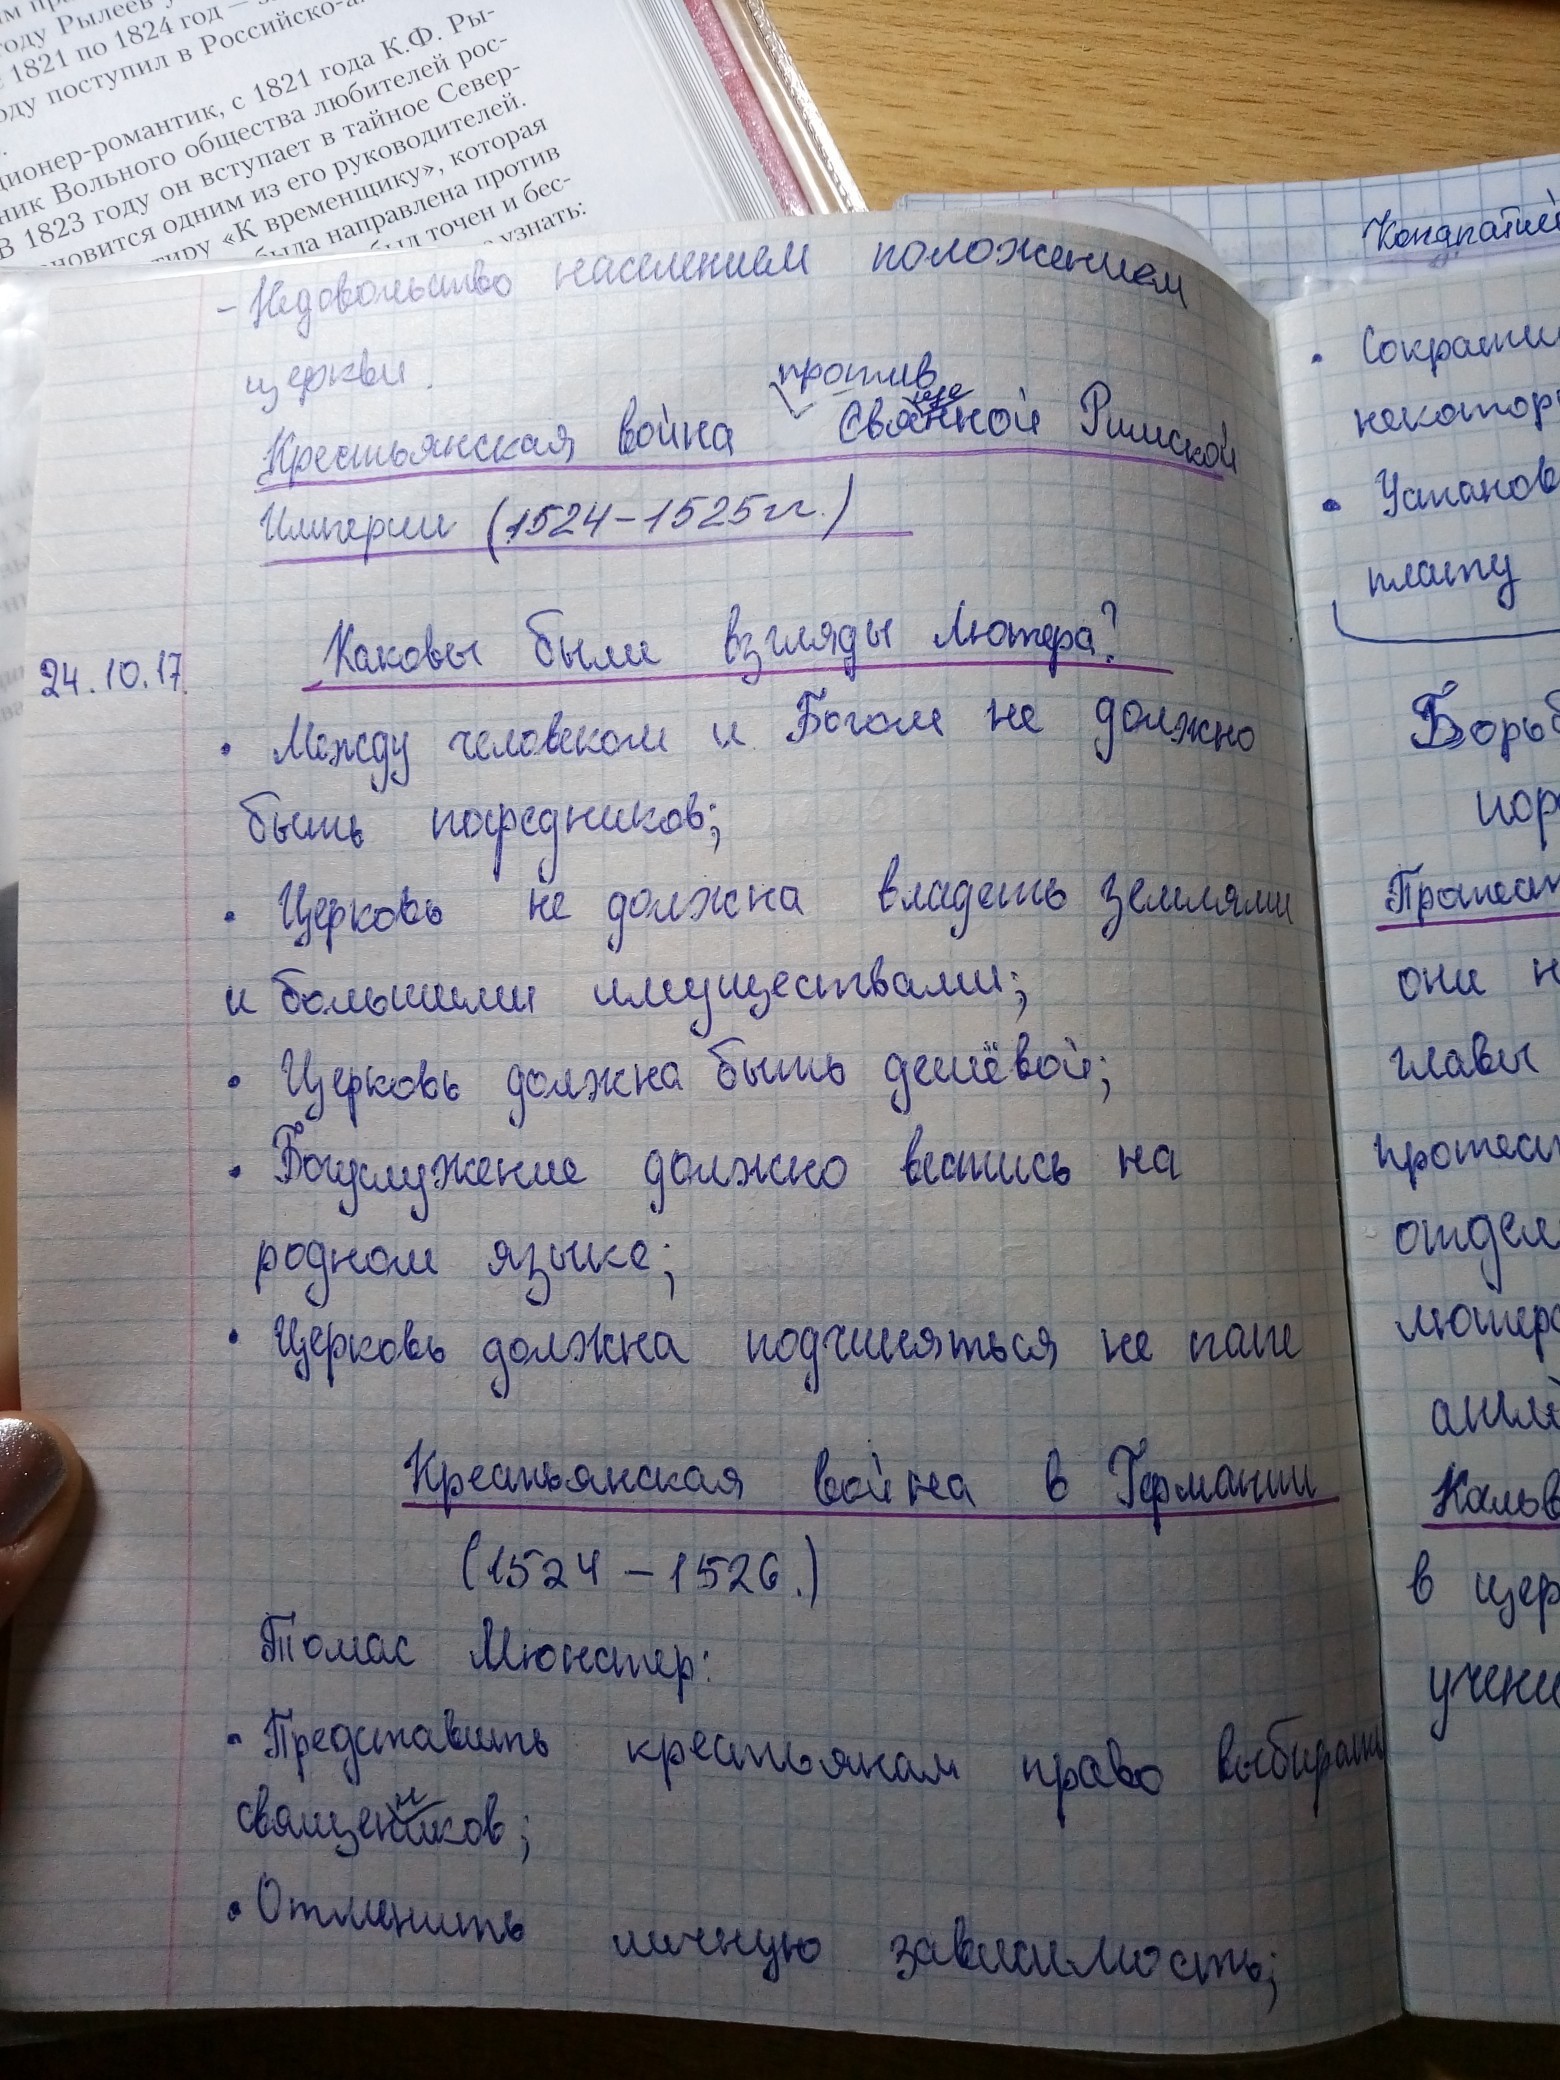 1821 по 1824 год —
оду поступил в Российско-а
ционер-романтик, с 1821 года К.Ф. Ры-
ник Вольного общества любителей рос-
В 1823 году он вступает в тайное Север-
ановится одним из его руководителей.
тиру «К временщику», которая
была направлена против
был точен и бес-
узнать:
- Недовольство населением положением
церкви.
против
Крестьянская война Свянной Римской
Империи (1524-1525гг.)
24.10.17.
Каковы были взгляды Лютера?
• Между человеком и Богом не должно
быть посредников;
• Церковь не должна владеть землями
и большими имуществами;
• Церковь должна быть дешёвой;
• Богуслужение должно вестись на
родном языке;
• Церковь должна подчиняться не папе
Крестьянская война в Германии
(1524-1526.)
Томас Мюнстер:
• Представить крестьянам право выбирать
священиков;
• Отменить личную зависимость;
Кондратий
• Сократи
некотор
• Установ
плату
Борьб
пор
Протест
они н
главы
протест
отдел
лютер
англ
Кальв
в цер
учени